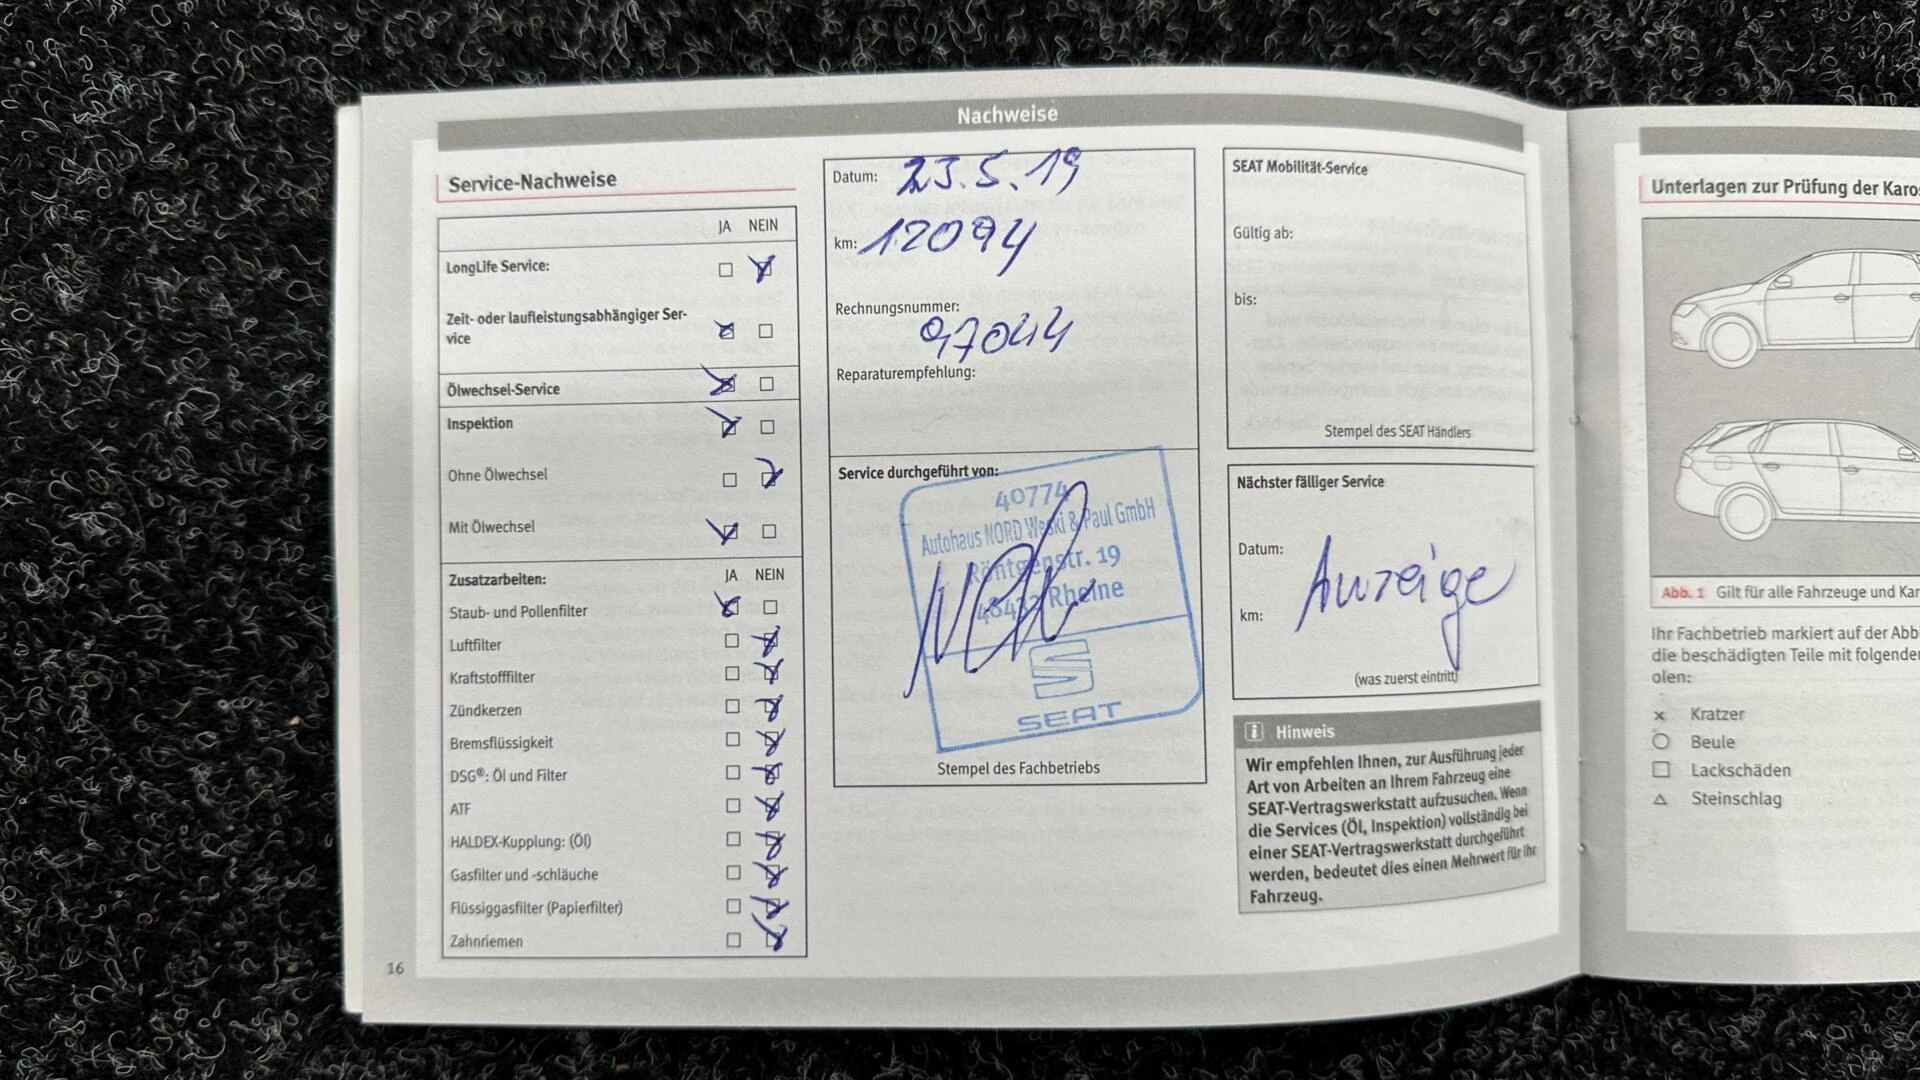 Nachweise
Service-Nachweise
JA NEIN
LongLife Service:
Zeit- oder laufleistungsabhängiger Ser-
vice
Ölwechsel-Service
Inspektion
Ohne Ölwechsel
Mit Ölwechsel
Zusatzarbeiten: JA NEIN
Staub- und Pollenfilter
Luftfilter
Kraftstofffilter
Zündkerzen
Bremsflüssigkeit
DSG®: Öl und Filter
ATF
HALDEX-Kupplung: (Öl)
Gasfilter und -schläuche
Flüssiggasfilter (Papierfilter)
Zahnriemen
16
Datum: 23.5.19
km: 12094
Rechnungsnummer:
97044
Reparaturempfehlung:
Service durchgeführt von:
40774
Autohaus NORD Weski & Paul GmbH
Röntgenstr. 19
48432 Rheine
SEAT
Stempel des Fachbetriebs
SEAT Mobilität-Service
Gültig ab:
bis:
Stempel des SEAT Händlers
Nächster fälliger Service
Datum:
Anzeige
km:
(was zuerst eintritt)
Hinweis
Wir empfehlen Ihnen, zur Ausführung jeder
Art von Arbeiten an Ihrem Fahrzeug eine
SEAT-Vertragswerkstatt aufzusuchen. Wenn
die Services (Öl, Inspektion) vollständig bei
einer SEAT-Vertragswerkstatt durchgeführt
werden, bedeutet dies einen Mehrwert für Ihr
Fahrzeug.
Unterlagen zur Prüfung der Karos
Abb. 1 Gilt für alle Fahrzeuge und Kar
Ihr Fachbetrieb markiert auf der Abb
die beschädigten Teile mit folgender
olen:
x Kratzer
○ Beule
□ Lackschäden
△ Steinschlag